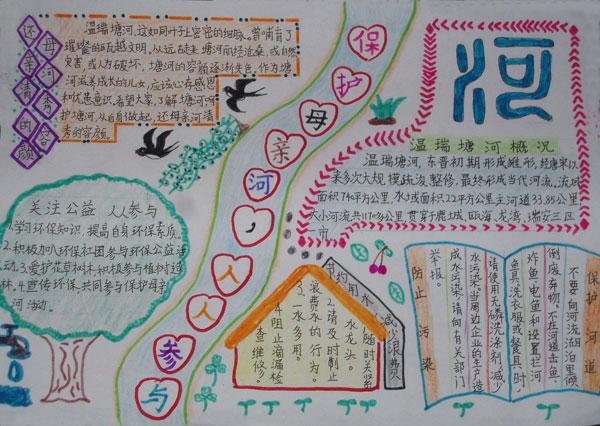 还母亲河清秀的容颜
温瑞塘河,这如同叶子上密密的细脉。曾哺育了
璀璨的瓯越文明。从远古走 塘河历经沧桑,或自然
灾害,或人为破坏,塘河的容颜逐渐失色,作为塘
河滋养成长的儿女,应该心存感恩
和忧患意识,希望大家,了解塘河呵
护塘河,从自身做起,还母亲河清
秀的容颜。
保护母亲河,人人参与
河
温瑞塘河概况
温瑞塘河,东晋初期形成雏形,经唐宋以
来多次大规模疏浚整修,最终形成当代河流。流域
面积740平方公里,水域面积.22平方公里主河道33.85公里
大小河流共1178公里贯穿鹿城,瓯海,龙湾,瑞安三区
一市
关注公益 人人参与
1.学习环保知识,提高自身环保素质。
2.积极加入环保社团参与环保公益活
动。3.爱护花草树木,积极参与植树造
林。4.宣传环保,共同参与保护母亲
河活动。
节约用水
减少浪费
1.随时关紧
水龙头。
2.请及时制止
浪费水的行为。
3.一水多用。
4.阻止滴漏检
查维修。
保护河道
不要向河流湖泊里倾
倒废弃物。不在河道击鱼、
炸鱼、电鱼和设置拦河
鱼具、洗衣服或餐具时,
请使用无磷洗涤剂,减少
水污染。当周边企业的生产造
成水污染,请向有关部门
举报。
防止污染